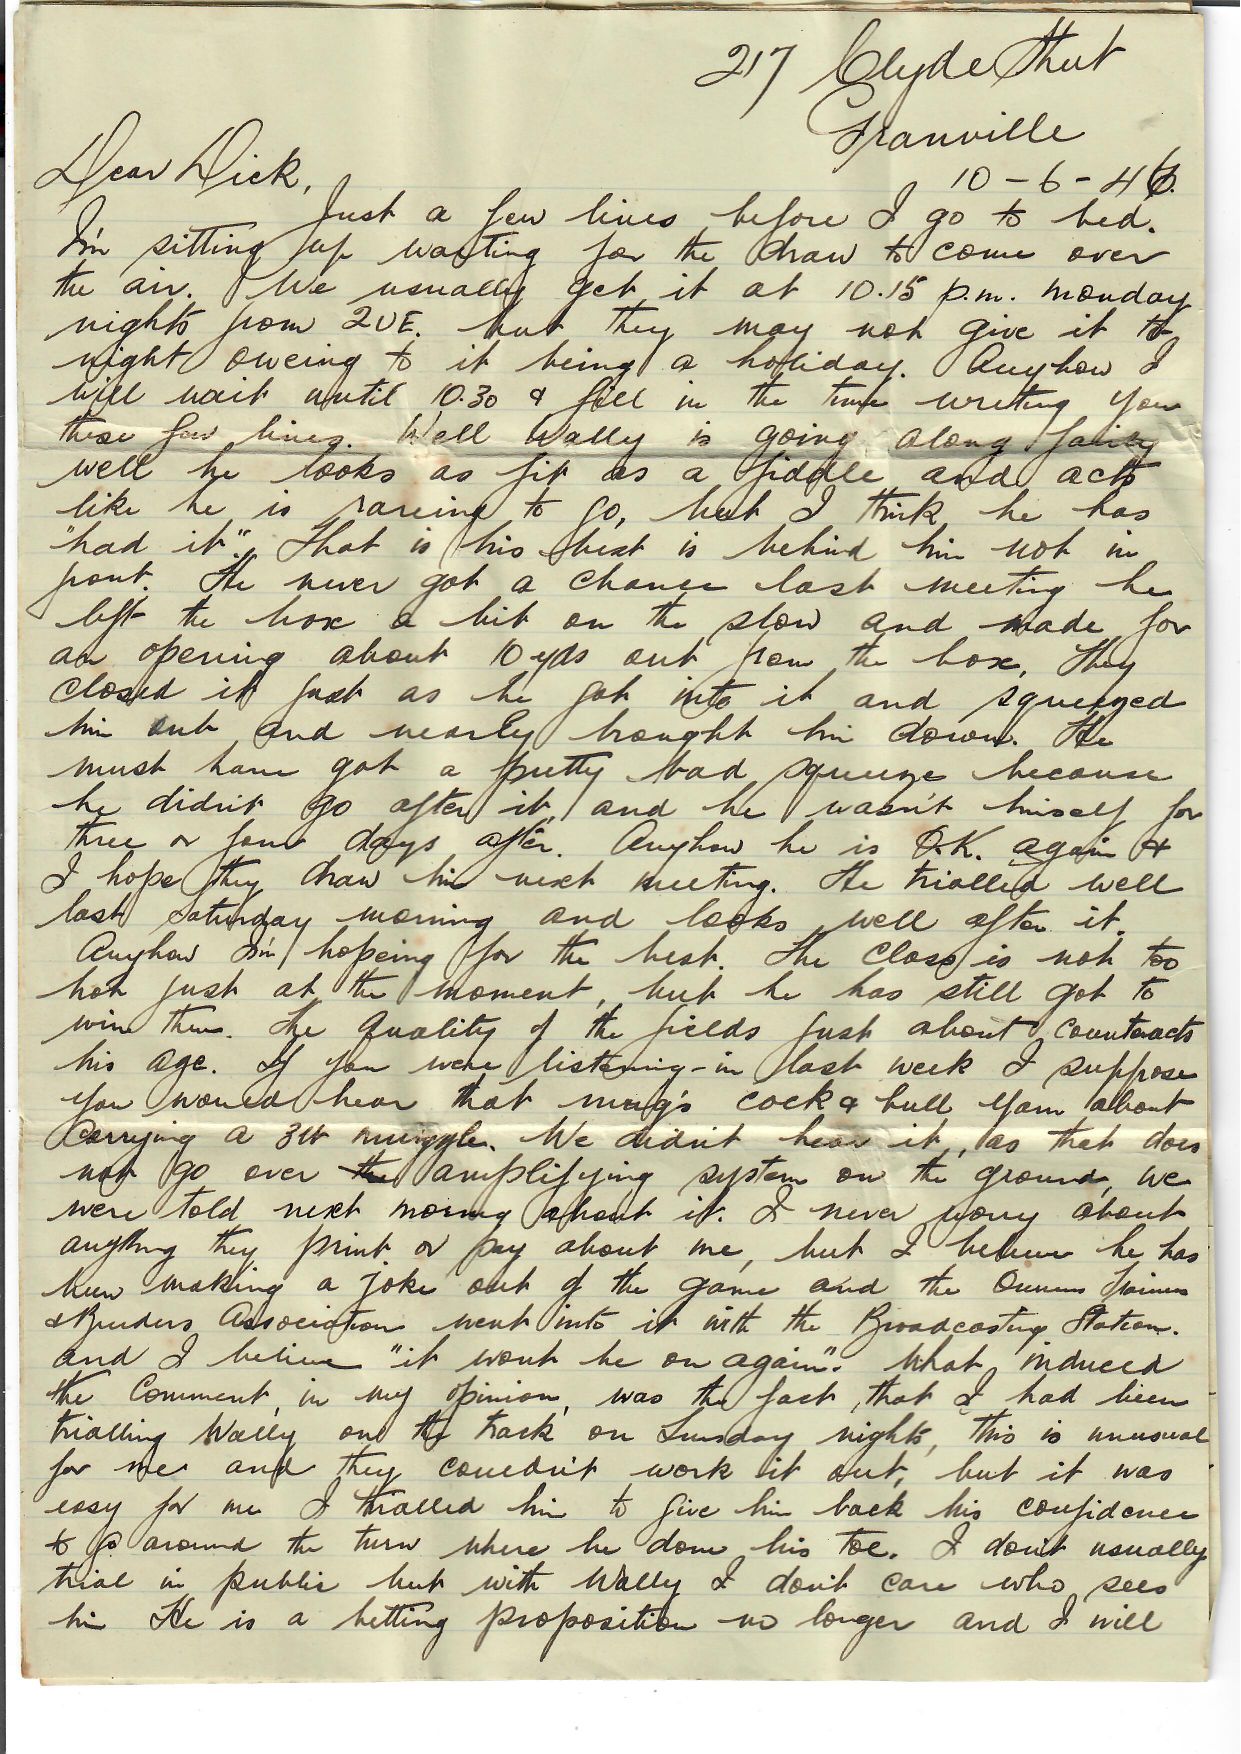 217 Clyde Street
Granville
10-6-46.
Dear Dick,
Just a few lines before I go to bed.
I'm sitting up waiting for the draw to come over
the air. We usually get it at 10.15 p.m. monday
nights from 2UE. but they may not give it to-
night oweing to it being a holiday. Anyhow I
will wait until 10.30 & fill in the time writing you
these few lines. Well Wally is going along fairly
well he looks as fit as a fiddle and acts
like he is rareing to go, but I think he has
"had it". That is his best is behind him not in
front. He never got a chance last meeting he
left the box a bit on the slow and made for
an opening about 10 yds out from the box, They
closed it just as he got into it and squeezed
him out and nearly brought him down. He
must have got a pretty bad squeeze because
he didn't go after it, and he wasn't himself for
three or four days after. Anyhow he is O.K. again &
I hope they draw him next meeting. He trialled well
last saturday morning and looks well after it.
Anyhow I'm hopeing for the best. The class is not too
hot just at the moment, but he has still got to
win them. The quality of the fields just about counteracts
his age. If you were listening-in last week I suppose
you would hear that mug's cock & bull yarn about
Carrying a 3lb muzzle. We didn't hear it, as that does
not go over the amplifying system on the ground, we
were told next morning about it. I never worry about
anything they print or say about me, but I believe he has
been making a joke out of the game and the Owners Trainers
& Breeders Association went into it with the Broadcasting Station.
and I believe "it wont be on again". What induced
the Comment, in my opinion, was the fact, that I had been
trialling Wally on the track on Tuesday nights, this is unusual
for me and they couldn't work it out, but it was
easy for me I trialled him to give him back his confidence
to go around the turn where he done his toe. I don't usually
trial in public but with Wally I don't care who sees
him He is a betting proposition no longer and I will